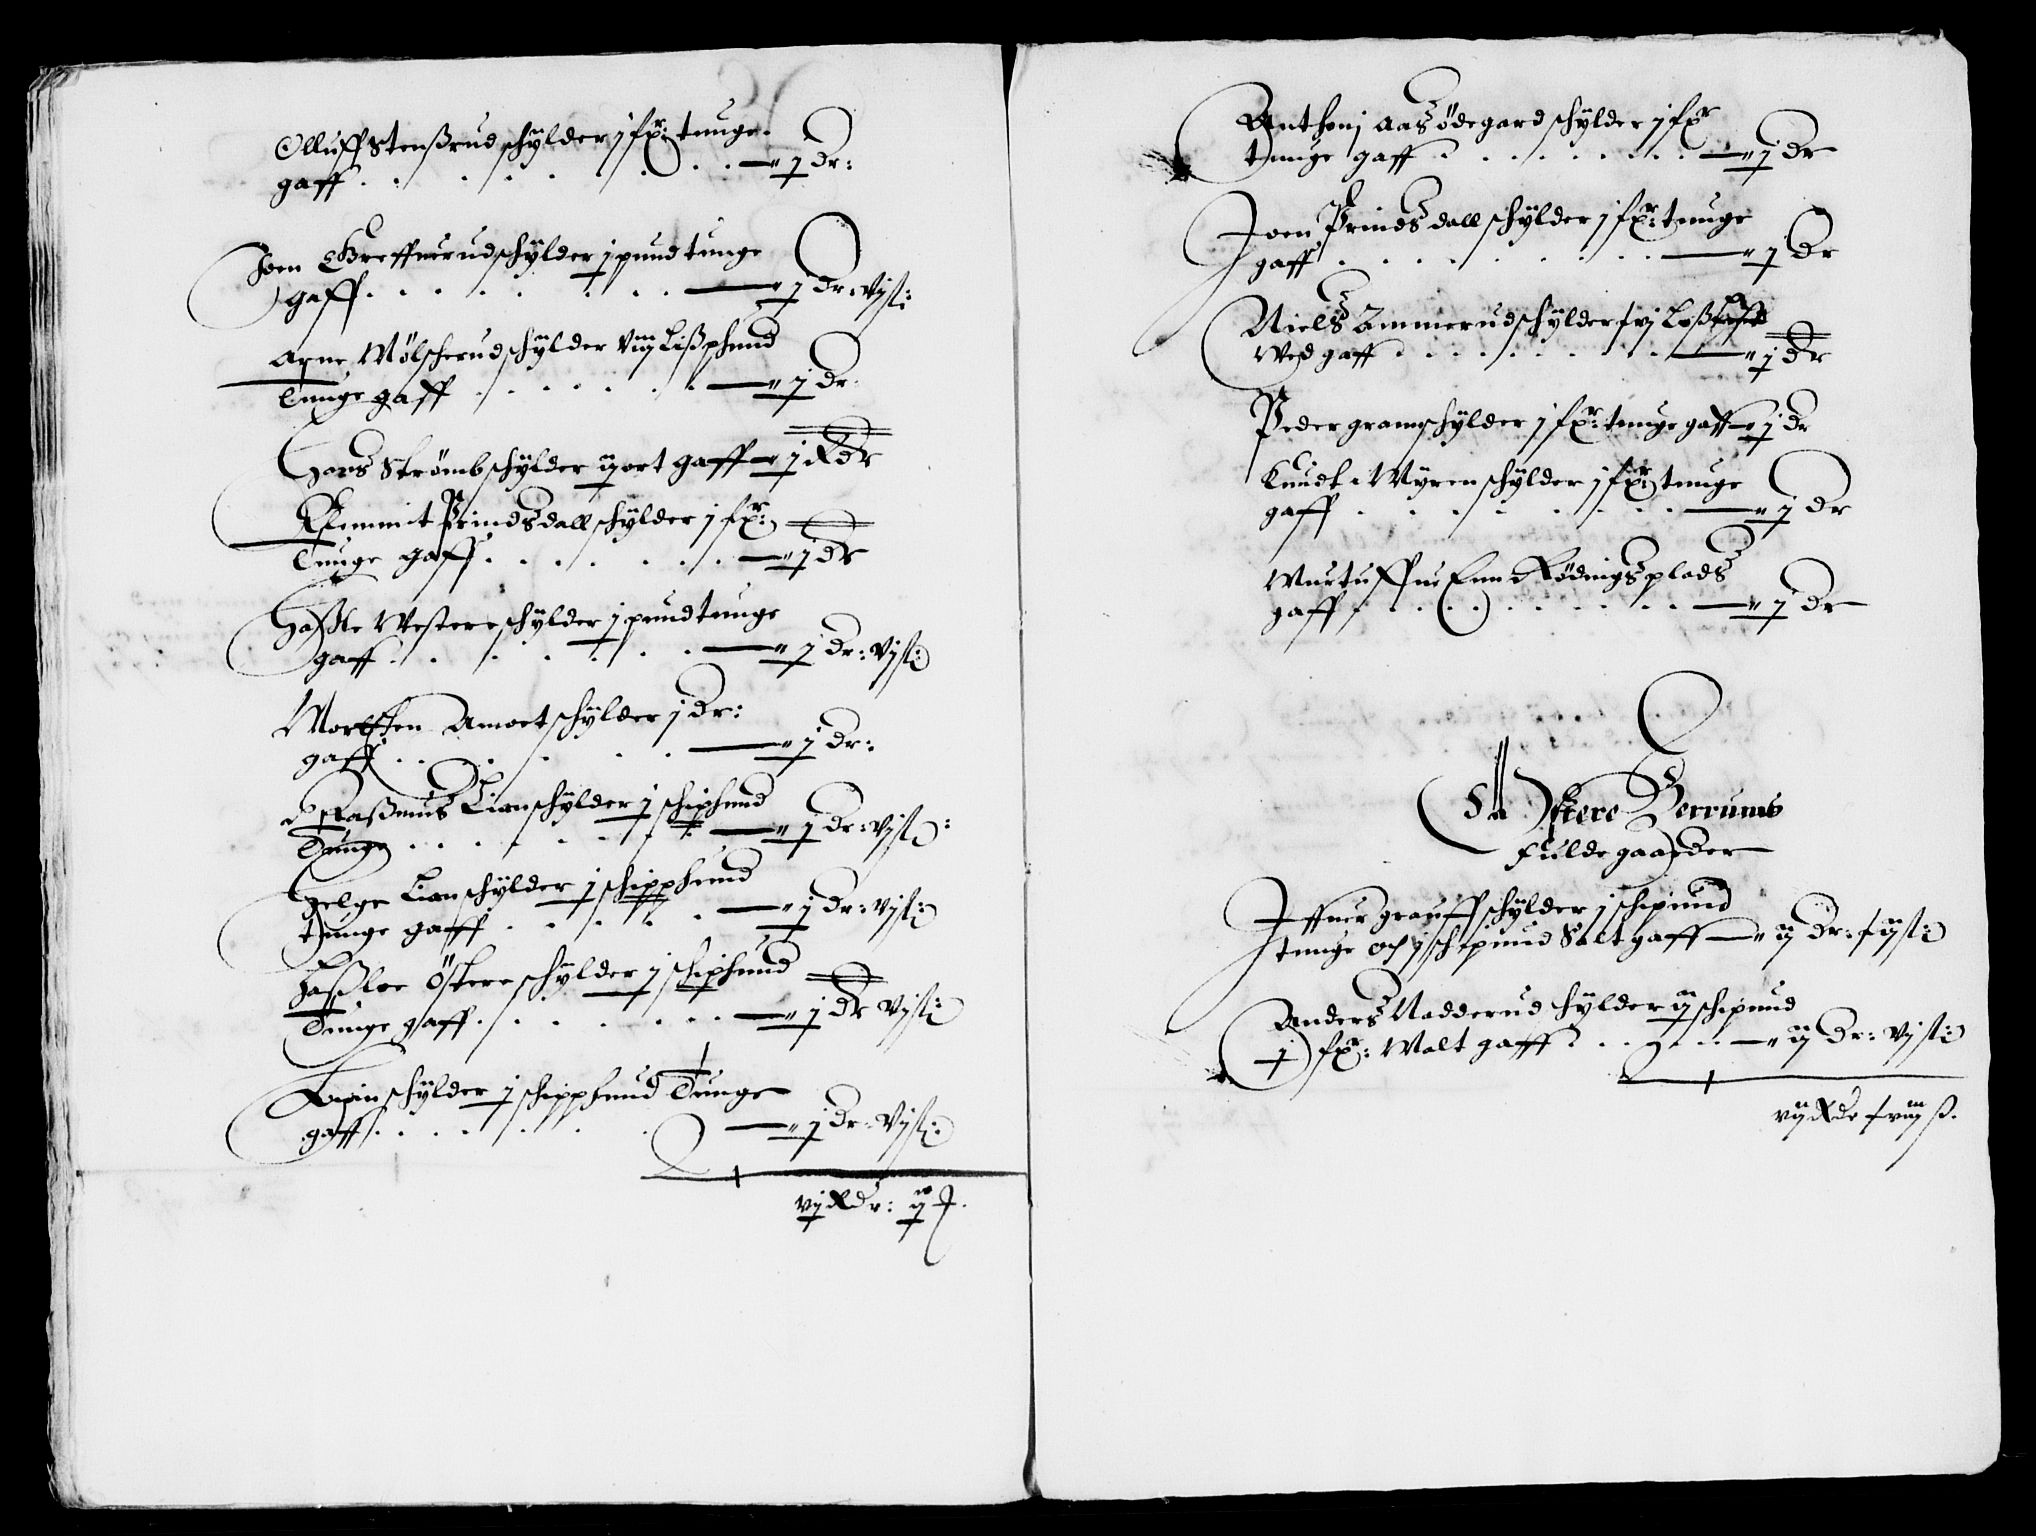 Olluff Stenßrud schÿlder j fxr: tunge
gaff . . . . . . . — j dr:
Joen Greffuerud schÿlder j pund tunge
gaff . . . . . . . — j dr: vj ſl:
Arne Mölscherud schÿlder viij Lißphund
Tunge gaff . . . . . . — j dr
Hans Strömb schÿlder ij ort gaff — j Rdr
Rfemmit Prindsdall schÿlder j fxr:
Tunge gaff . . . . . . — j dr
Haßle Westere schÿlder j pund tunge
gaff . . . . . . . — j dr: vj ſl:
Mortten Amoet schÿlder j dr:
gaff . . . . . . — j dr:
Raßmus Lian schÿlder j schiphund
Tunge . . . . . . . — j dr: vj ſl:
Helge Lian schÿlder j schipphund
tunge gaff . . . . . — j dr: vj ſl:
Haßlee Östere schÿlder j schiphund
Tunge gaff . . . . . . — j dr vj ſl:
schÿlder j schipphund Tunge
gaff . . . . . . — j dr: vj ſl:
vij Rdr: ij
Anthonj Aasödegard schÿlder j fxr
tunge gaff . . . . . . . — j dr
Joen Prindsdall schÿlder j fxr: tunge
gaff . . . . . . . — j dr
Niels Ammerud schÿlder
Wed gaff . . . . . . . — j dr
Peder gram schÿlder j fxr: tunge gaff — j dr
Knudt Myren schÿlder j fxr: tunge
gaff . . . . . . . — j dr
Rödnigsplads
gaff . . . . . . . — j dr
Östere Berrums
Fulde gaarder
Iffuer grauff schÿlder j schipund
tunge och j schipund Salt gaff — ij dr: ſl:
Anders Nadderud schÿlder ij schipund
j fxr: Malt gaff . . . . . — ij dr: vj ſl: